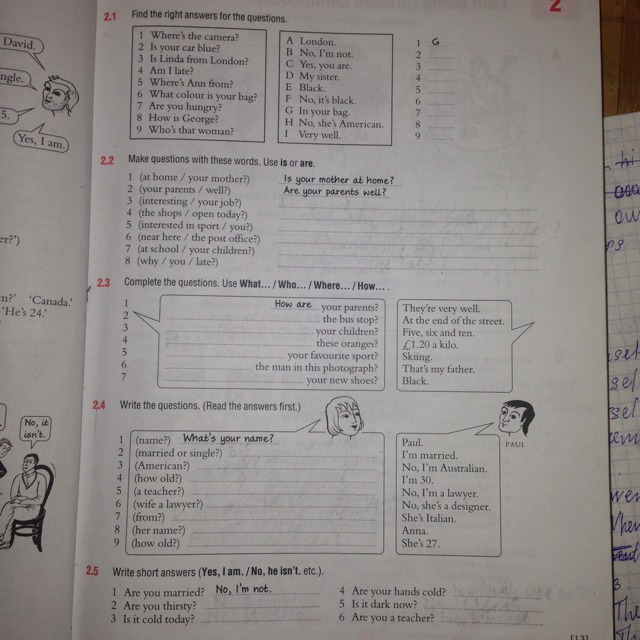 2
David.
ngle.
5.
Yes, I am.
er?')
m?' 'Canada.'
'He's 24.'
No, it
isn't.
2.1 Find the right answers for the questions.
1 Where's the camera?
2 Is your car blue?
3 Is Linda from London?
4 Am I late?
5 Where's Ann from?
6 What colour is your bag?
7 Are you hungry?
8 How is George?
9 Who's that woman?
A London.
B No, I'm not.
C Yes, you are.
D My sister.
E Black.
F No, it's black.
G In your bag.
H No, she's American.
I Very well.
1 G
2
3
4
5
6
7
8
9
2.2 Make questions with these words. Use is or are.
1 (at home / your mother?) Is your mother at home?
2 (your parents / well?) Are your parents well?
3 (interesting / your job?)
4 (the shops / open today?)
5 (interested in sport / you?)
6 (near here / the post office?)
7 (at school / your children?)
8 (why / you / late?)
2.3 Complete the questions. Use What... / Who... / Where... / How... .
1 How are your parents? They're very well.
2 the bus stop? At the end of the street.
3 your children? Five, six and ten.
4 these oranges? £1.20 a kilo.
5 your favourite sport? Skiing.
6 the man in this photograph? That's my father.
7 your new shoes? Black.
2.4 Write the questions. (Read the answers first.)
PAUL
1 (name?) What's your name? Paul.
2 (married or single?) I'm married.
3 (American?) No, I'm Australian.
4 (how old?) I'm 30.
5 (a teacher?) No, I'm a lawyer.
6 (wife a lawyer?) No, she's a designer.
7 (from?) She's Italian.
8 (her name?) Anna.
9 (how old?) She's 27.
2.5 Write short answers (Yes, I am. / No, he isn't. etc.).
1 Are you married? No, I'm not.
2 Are you thirsty?
3 Is it cold today?
4 Are your hands cold?
5 Is it dark now?
6 Are you a teacher?